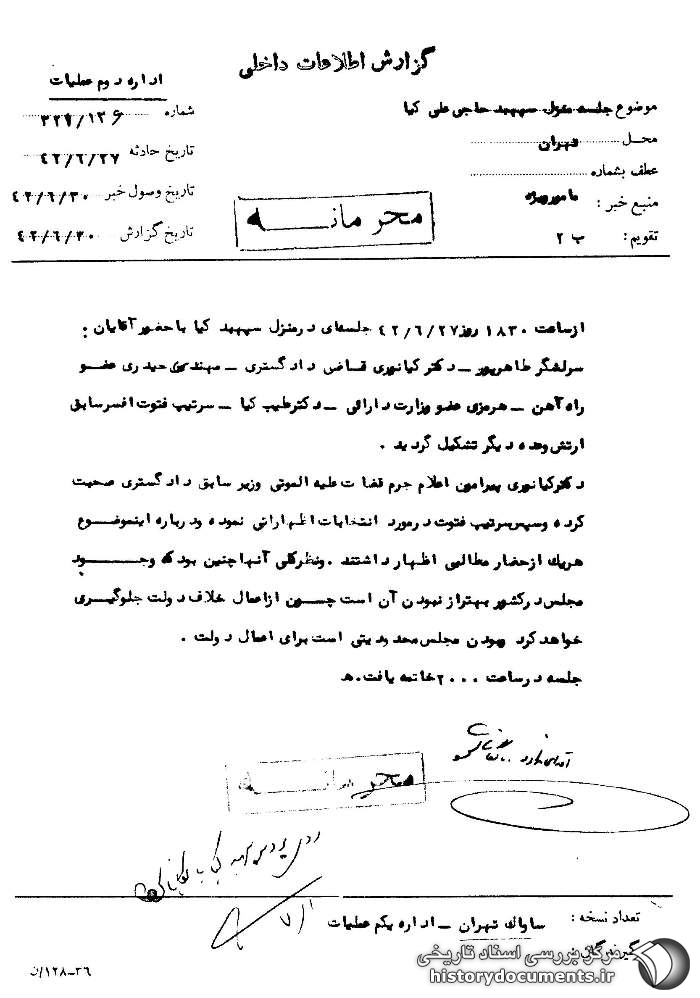 گزارش اطلاعات داخلی
اداره دوم عملیات
موضوع جلسه منزل سپهبد حاجی علی کیا
شماره ۳۲۱/۱۲۶
محل تهران
تاریخ حادثه ۴۲/۶/۲۷
عطف بشماره
تاریخ وصول خبر ۴۲/۶/۳۰
منبع خبر : مامور ویژه
تاریخ گزارش ۴۲/۶/۳۰
تقویم : ب ۲
محرمانه
ازساعت ۱۸۳۰ روز ۴۲/۶/۲۷ جلسه‌ای درمنزل سپهبد کیا باحضور آقایان :
سرلشگر طاهرپور – دکتر کیانوری قاضی دادگستری – مهندس حیدری عضو
راه آهن – هرمزی عضو وزارت دارائی – دکتر طبیب کیا – سرتیپ فتوت افسر سابق
ارتش وعده دیگر تشکیل گردید .
دکتر کیانوری پیرامون اعلام جرم قضات علیه الموتی وزیر سابق دادگستری صحبت
کرده وسپس سرتیپ فتوت درمورد انتخابات اظهاراتی نموده ودرباره اینموضوع
هریک ازحضار مطالبی اظهار داشتند . ونظرکلی آنها چنین بود که وجود
مجلس درکشور بهتراز نبودن آن است چون ازاعمال خلاف دولت جلوگیری
خواهد کرد وبودن مجلس محدودیتی است برای اعمال دولت .
جلسه درساعت ۲۰۰۰ خاتمه یافت. ه
محرمانه
۷/۱
تعداد نسخه :
ساواک تهران – اداره یکم عملیات
گیرندگان
مرکز بررسی اسناد تاریخی
historydocuments.ir
۳۶–۱۲۸/ن